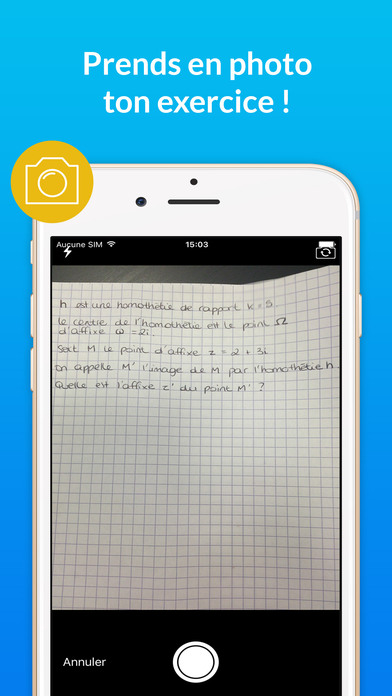 Prends en photo
ton exercice !
Aucune SIM
15:03
h est une homothétie de rapport k = 5
le centre de l'homothétie est le point Ω
d'affixe ω = 2i
Soit M le point d'affixe z = 2 + 3i
on appelle M' l'image de M par l'homothétie h
Quelle est l'affixe z' du point M' ?
Annuler